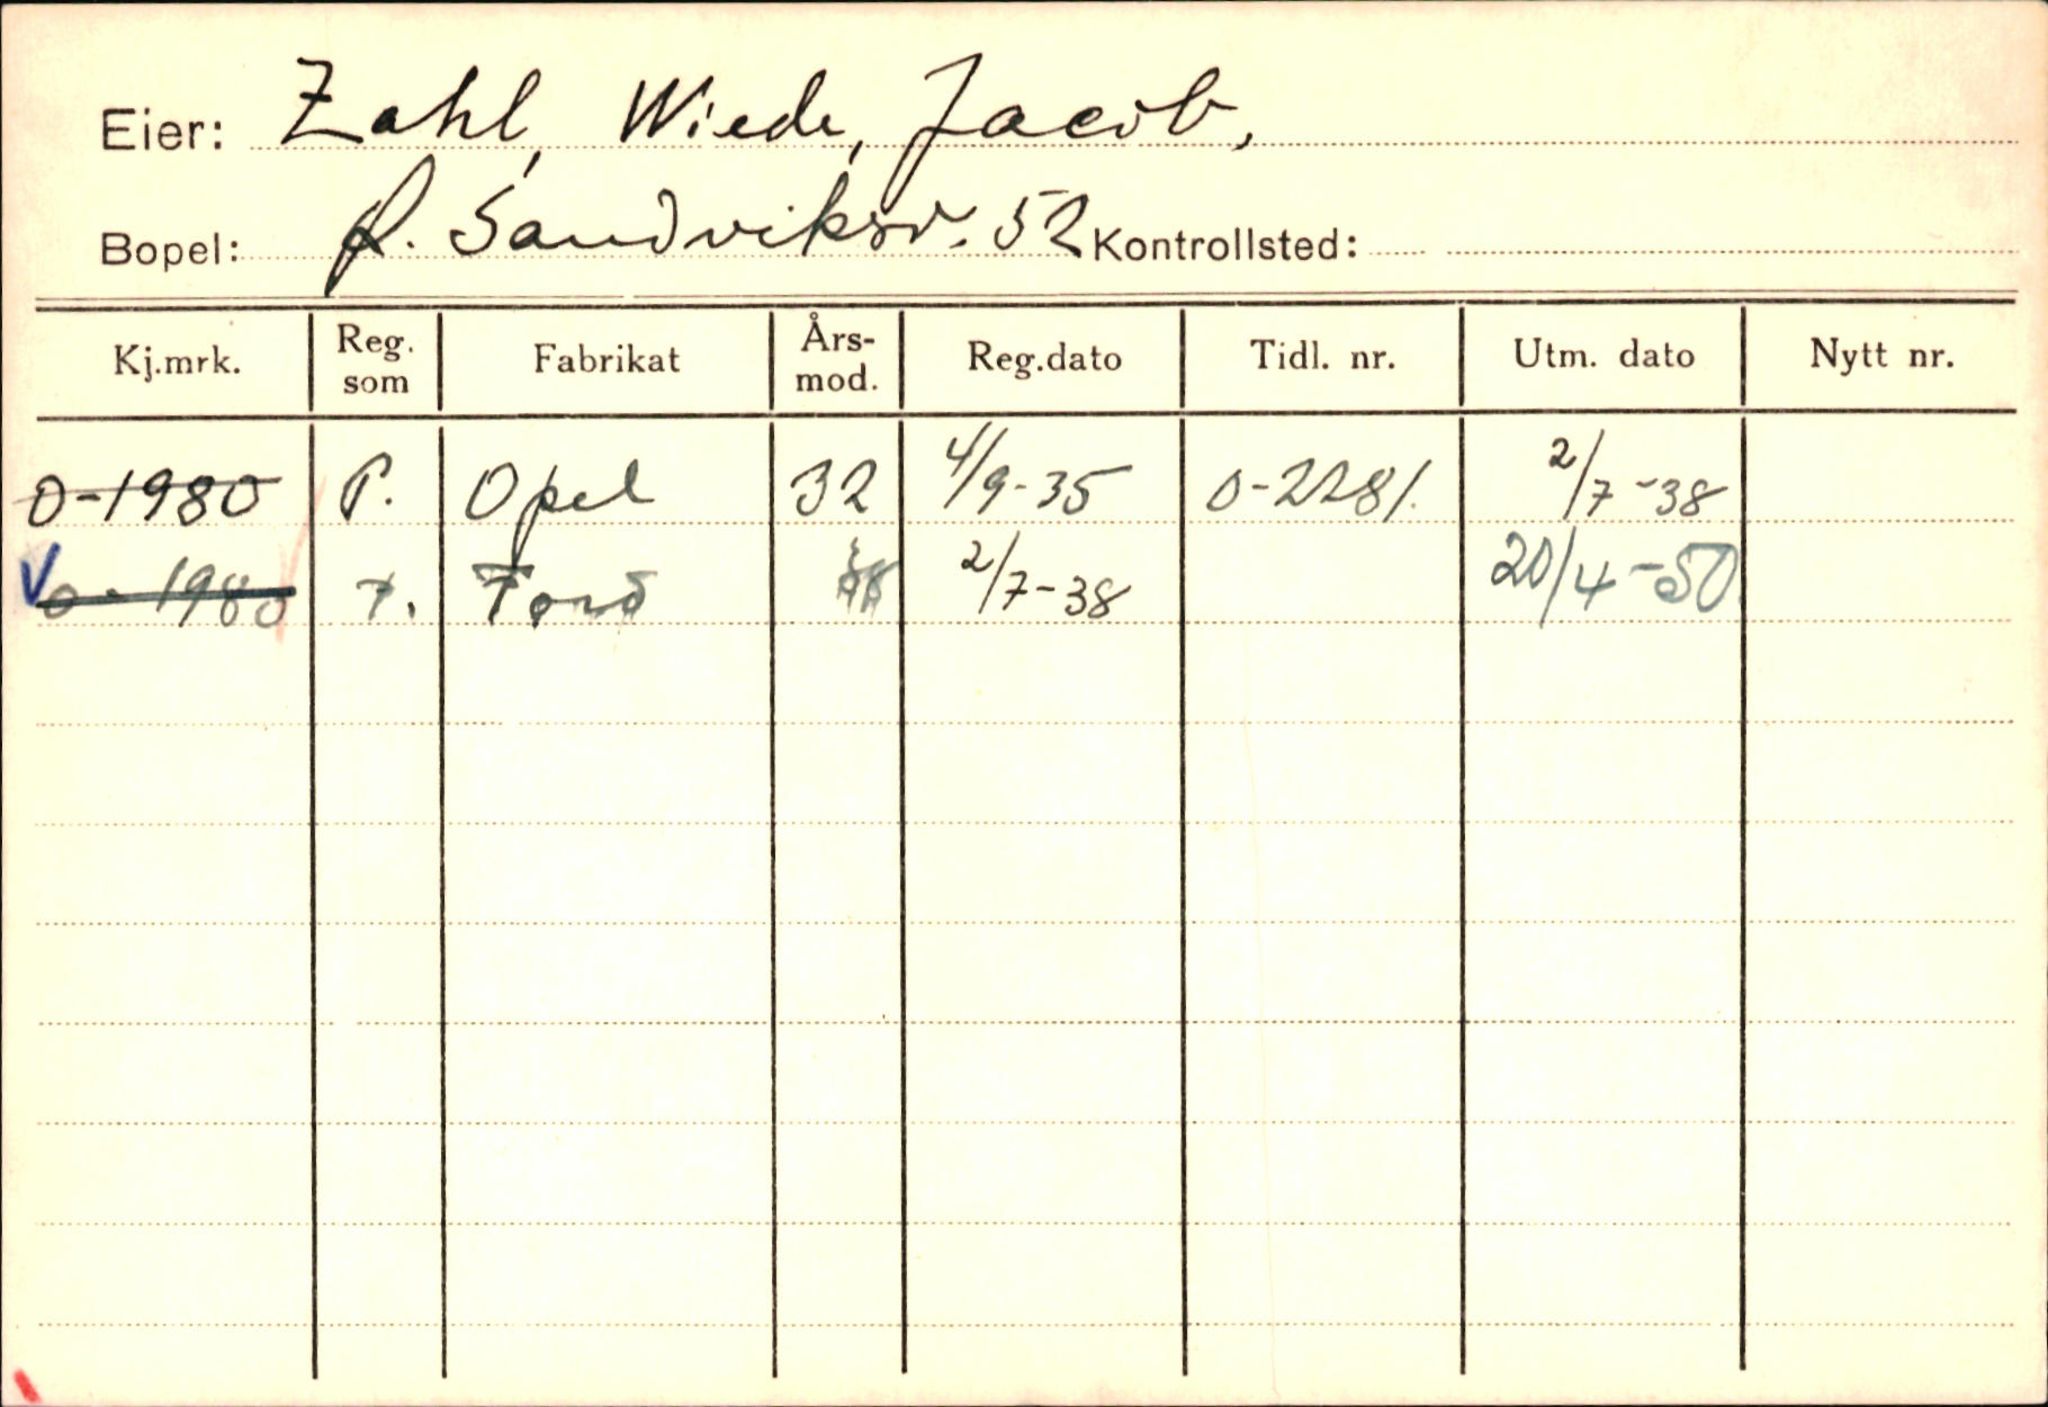 Eier: Zahl, Wiede, Jacob,
Bopel: Ø. Sandviksv. 52 Kontrollsted:
Kj.mrk. Reg. som Fabrikat Års-mod. Reg.dato Tidl. nr. Utm. dato Nytt nr.
O-1980 P. Opel 32 4/9-35 O-2281. 2/7-38
O-1980 Ford 2/7-38 20/4-50